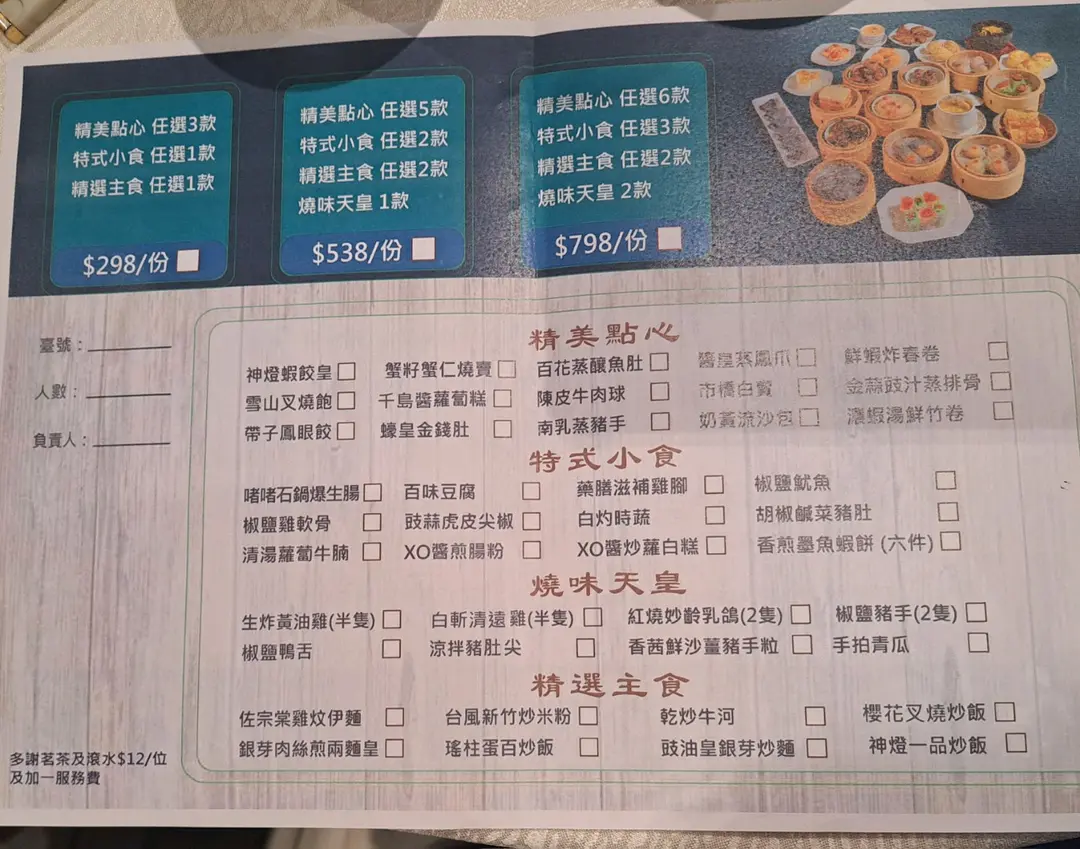 精美點心 任選3款
特式小食 任選1款
精選主食 任選1款
$298/份
精美點心 任選5款
特式小食 任選2款
精選主食 任選2款
燒味天皇 1款
$538/份
精美點心 任選6款
特式小食 任選3款
精選主食 任選2款
燒味天皇 2款
$798/份
臺號：
人數：
負責人：
精美點心
神燈蝦餃皇 蟹籽蟹仁燒賣 百花蒸釀魚肚 醬皇蒸鳳爪 鮮蝦炸春卷
雪山叉燒飽 千島醬蘿蔔糕 陳皮牛肉球 市橋白賣 金蒜豉汁蒸排骨
帶子鳳眼餃 蠔皇金錢肚 南乳蒸豬手 奶黃流沙包 濃蝦湯鮮竹卷
特式小食
啫啫石鍋爆生腸 百味豆腐 藥膳滋補雞腳 椒鹽魷魚
椒鹽雞軟骨 豉蒜虎皮尖椒 白灼時蔬 胡椒鹹菜豬肚
清湯蘿蔔牛腩 XO醬煎腸粉 XO醬炒蘿白糕 香煎墨魚蝦餅 (六件)
燒味天皇
生炸黃油雞(半隻) 白斬清遠雞(半隻) 紅燒妙齡乳鴿(2隻) 椒鹽豬手(2隻)
椒鹽鴨舌 涼拌豬肚尖 香茜鮮沙薑豬手粒 手拍青瓜
精選主食
佐宗棠雞炆伊麵 台風新竹炒米粉 乾炒牛河 櫻花叉燒炒飯
銀芽肉絲煎兩麵皇 瑤柱蛋百炒飯 豉油皇銀芽炒麵 神燈一品炒飯
多謝茗茶及滾水$12/位
及加一服務費